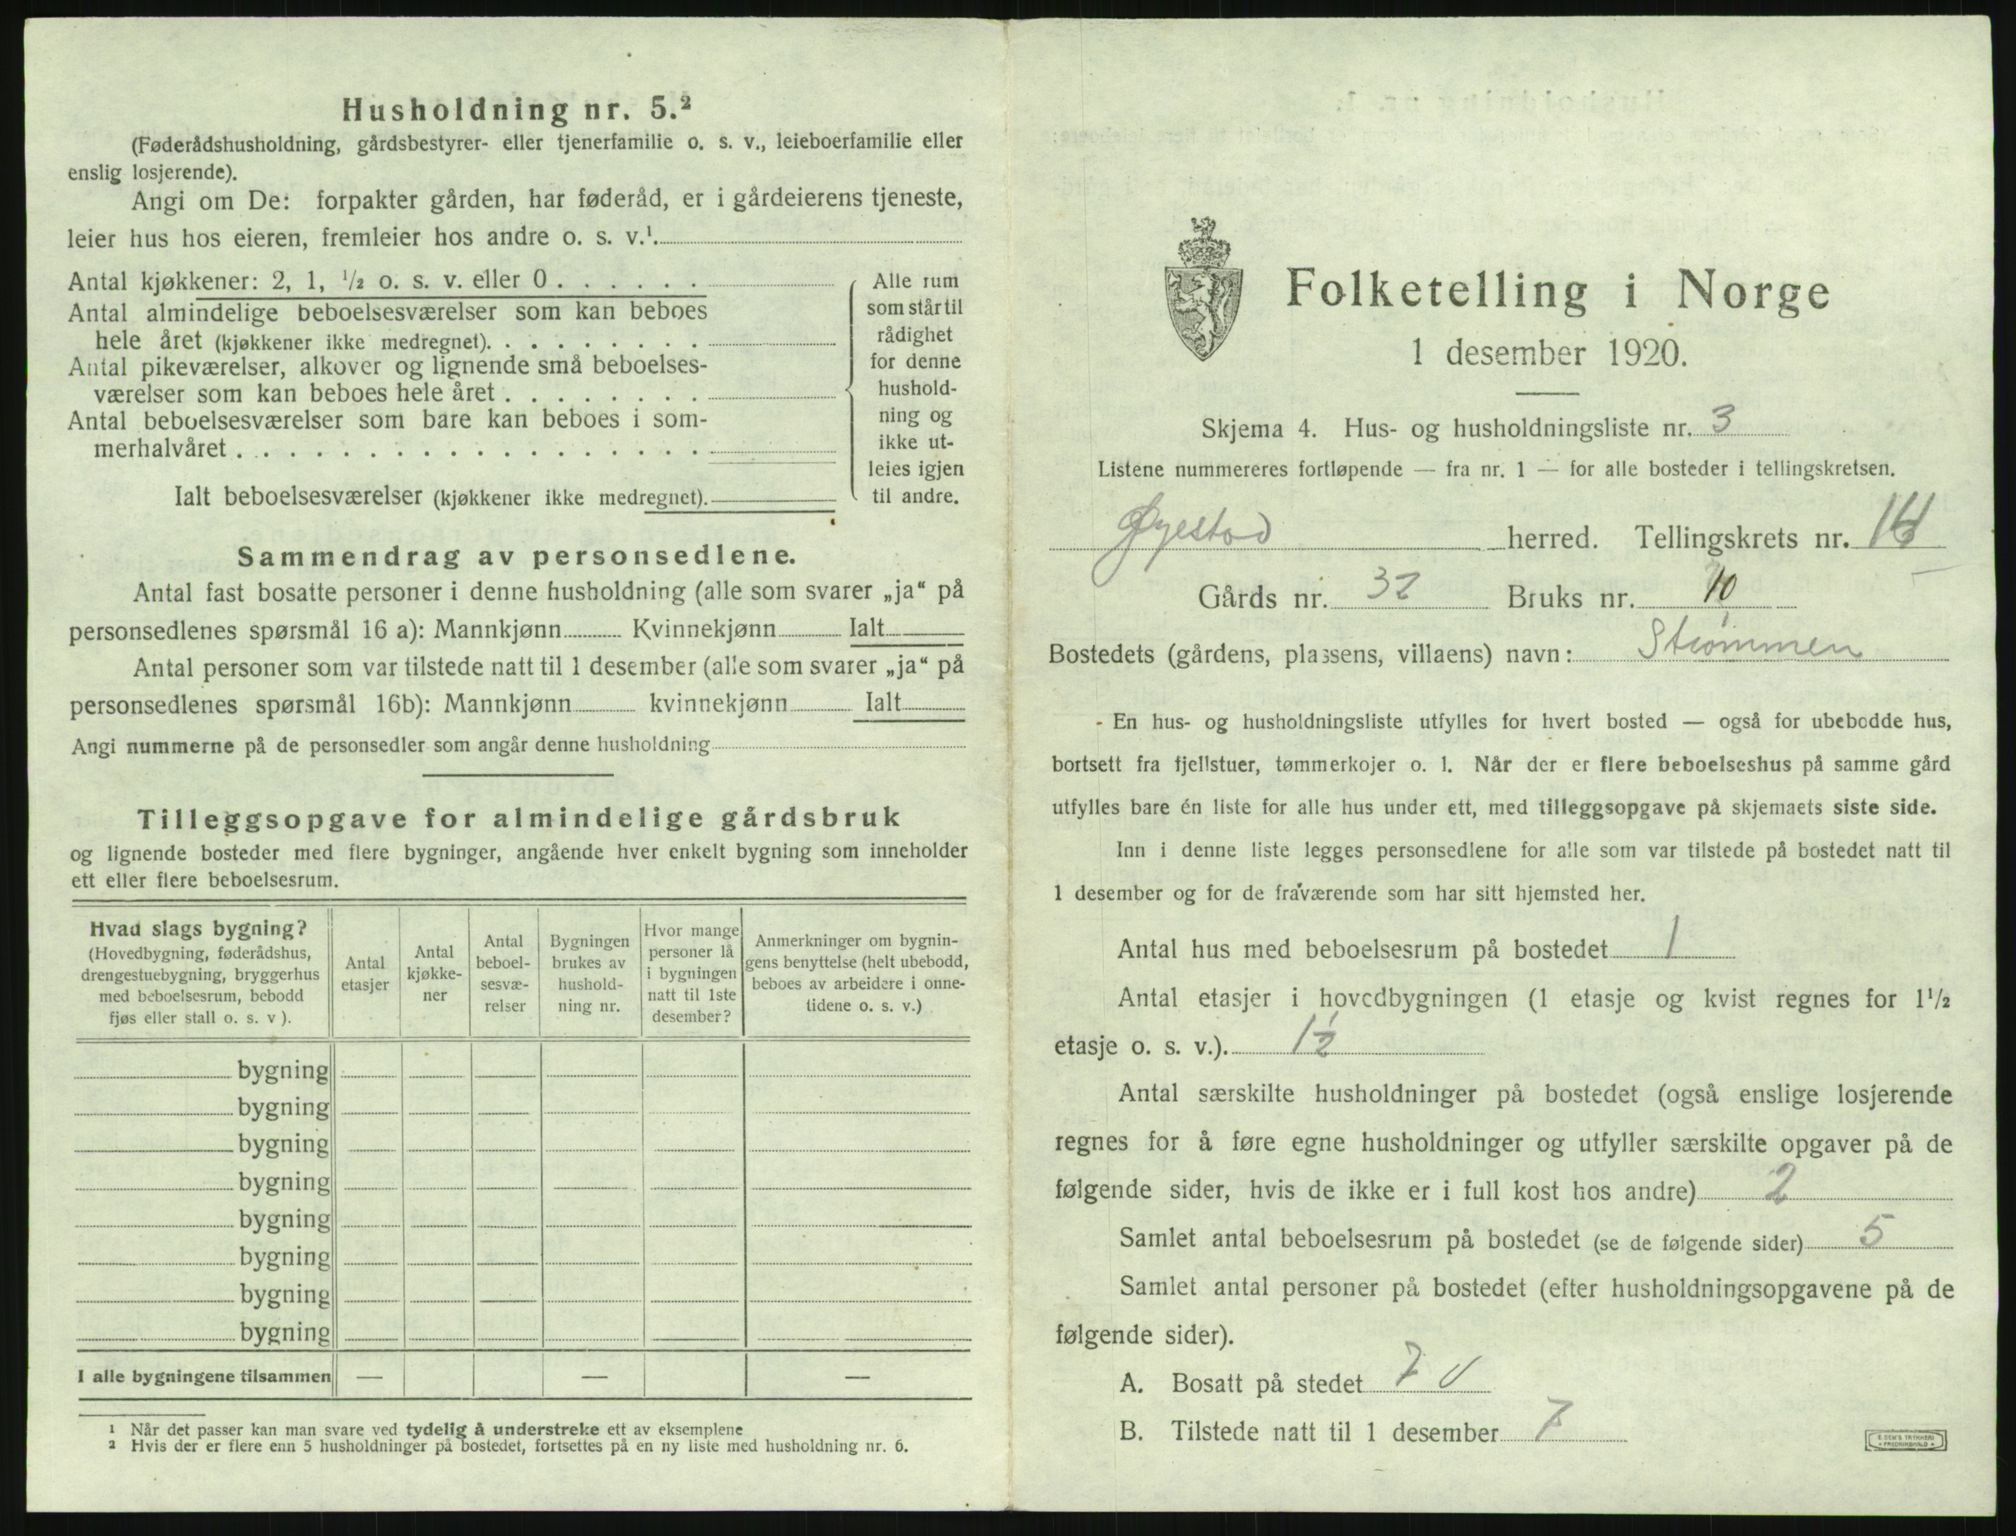 Husholdning nr. 5.²
(Føderådshusholdning, gårdsbestyrer- eller tjenerfamilie o. s. v., leieboerfamilie eller
enslig losjerende).
Angi om De: forpakter gården, har føderåd, er i gårdeierens tjeneste,
leier hus hos eieren, fremleier hos andre o. s. v.¹
Antal kjøkkener: 2, 1, ½ o. s. v. eller 0 . . . . . .
Antal almindelige beboelsesværelser som kan beboes
hele året (kjøkkener ikke medregnet). . . . . . . . .
Antal pikeværelser, alkover og lignende små beboelses-
værelser som kan beboes hele året . . . . . . . .
Antal beboelsesværelser som bare kan beboes i som-
merhalvåret . . . . . . . . . . . . . . . . . .
Ialt beboelsesværelser (kjøkkener ikke medregnet).
Alle rum
som står til
rådighet
for denne
hushold-
ning og
ikke ut-
leies igjen
til andre.
Sammendrag av personsedlene.
Antal fast bosatte personer i denne husholdning (alle som svarer „ja“ på
personsedlenes spørsmål 16 a): Mannkjønn Kvinnekjønn Ialt
Antal personer som var tilstede natt til 1 desember (alle som svarer „ja“ på
personsedlenes spørsmål 16b): Mannkjønn kvinnekjønn Ialt
Angi nummerne på de personsedler som angår denne husholdning
Tilleggsopgave for almindelige gårdsbruk
og lignende bosteder med flere bygninger, angående hver enkelt bygning som inneholder
ett eller flere beboelsesrum.
Hvad slags bygning?
(Hovedbygning, føderådshus,
drengestuebygning, bryggerhus
med beboelsesrum, bebodd
fjøs eller stall o. s. v ).
Antal
etasjer
Antal
kjøkke-
ner
Antal
beboel-
sesvæ-
relser
Bygningen
brukes av
hushold-
ning nr.
Hvor mange
personer lå
i bygningen
natt til 1ste
desember?
Anmerkninger om bygnin-
gens benyttelse (helt ubebodd,
beboes av arbeidere i onne-
tidene o. s. v.)
bygning
bygning
bygning
bygning
bygning
bygning
bygning
bygning
I alle bygningene tilsammen — — —
¹ Når det passer kan man svare ved tydelig å understreke ett av eksemplene
² Hvis der er flere enn 5 husholdninger på bostedet, fortsettes på en ny liste med husholdning nr. 6.
Folketelling i Norge
1 desember 1920.
Skjema 4. Hus- og husholdningsliste nr. 3
Listene nummereres fortløpende — fra nr. 1 — for alle bosteder i tellingskretsen.
Øyestad herred. Tellingskrets nr.
Gårds nr. 32 Bruks nr. 10
Bostedets (gårdens, plassens, villaens) navn: Strømmen
En hus- og husholdningsliste utfylles for hvert bosted — også for ubebodde hus,
bortsett fra fjellstuer, tømmerkojer o. l. Når der er flere beboelseshus på samme gård
utfylles bare én liste for alle hus under ett, med tilleggsopgave på skjemaets siste side.
Inn i denne liste legges personsedlene for alle som var tilstede på bostedet natt til
1 desember og for de fraværende som har sitt hjemsted her.
Antal hus med beboelsesrum på bostedet 1
Antal etasjer i hovedbygningen (1 etasje og kvist regnes for 1½
etasje o. s. v.). 1½
Antal særskilte husholdninger på bostedet (også enslige losjerende
regnes for å føre egne husholdninger og utfyller særskilte opgaver på de
følgende sider, hvis de ikke er i full kost hos andre) 2
Samlet antal beboelsesrum på bostedet (se de følgende sider) 5
Samlet antal personer på bostedet (efter husholdningsopgavene på de
følgende sider).
A. Bosatt på stedet 7
B. Tilstede natt til 1 desember 7